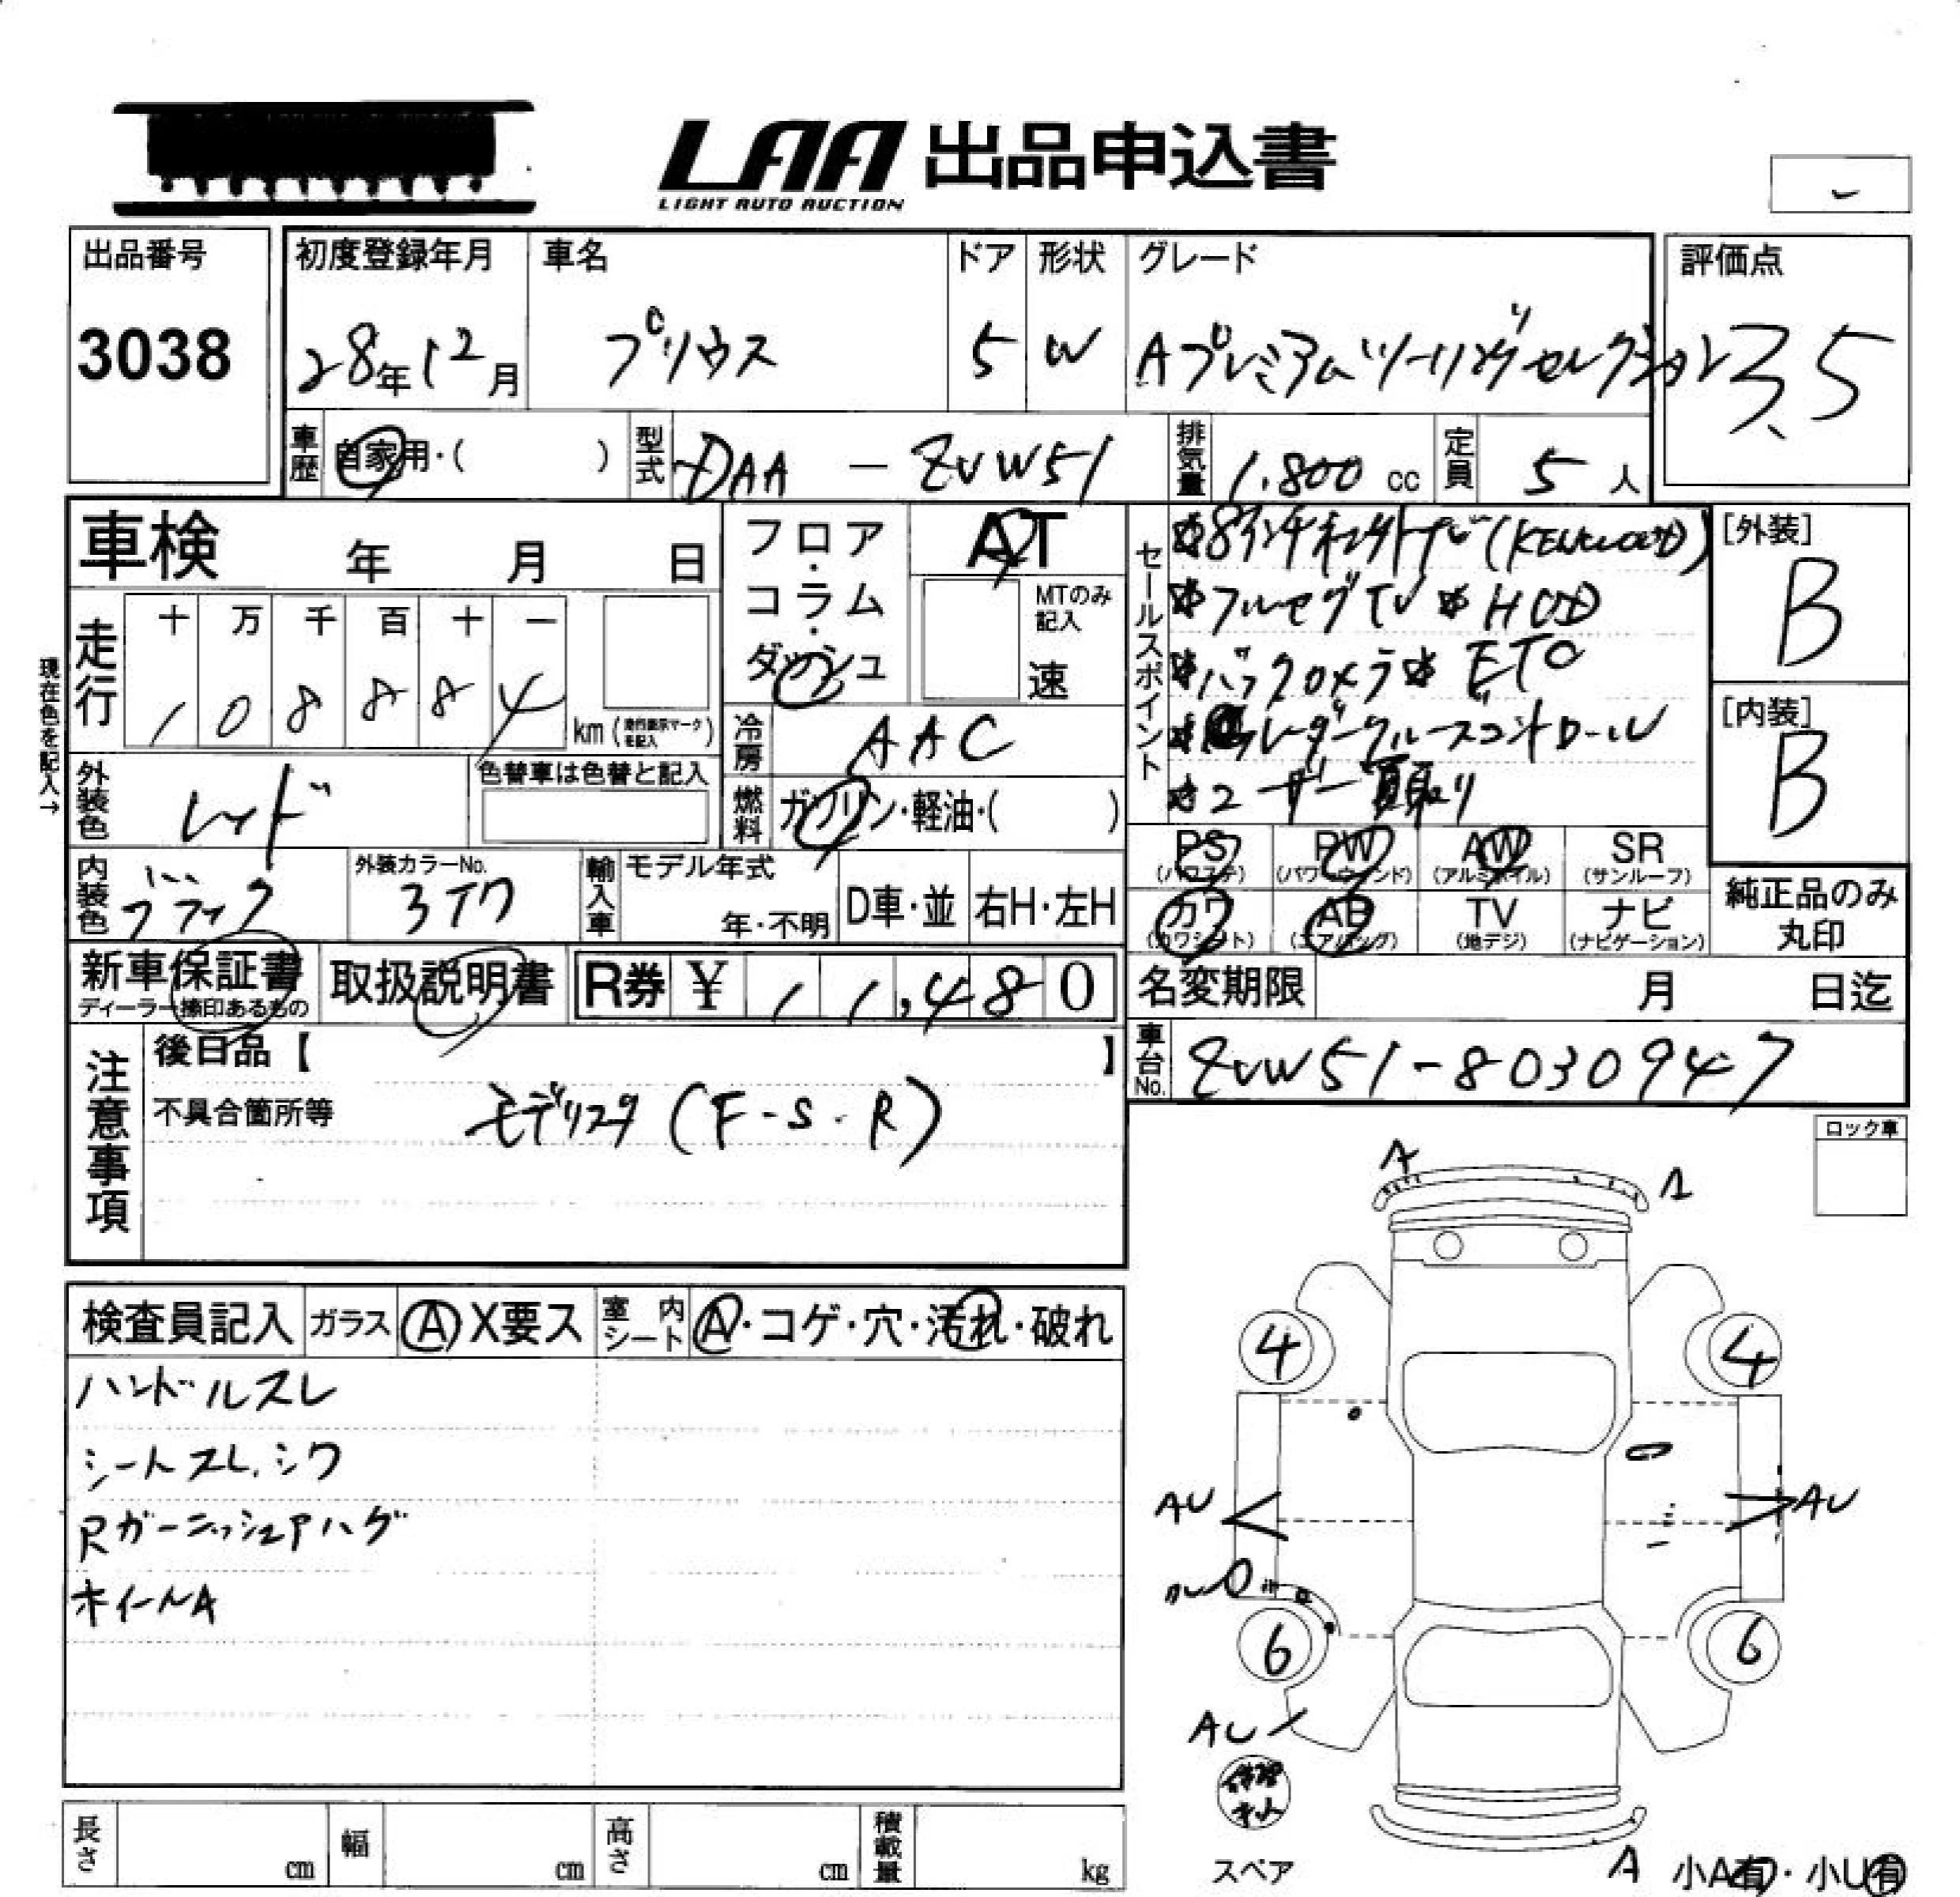 LAA 出品申込書
LIGHT AUTO AUCTION
出品番号
3038
初度登録年月
28年12月
車名
プリウス
ドア
5
形状
W
グレード
Aプレミアムツーリングセレクション
評価点
3.5
車歴 自家用・( )
型式 DAA - ZVW51
排気量 1.800 cc
定員 5 人
車検 年 月 日
フロア・コラム・ダッシュ
AT
MTのみ記入
速
走行 十 万 千 百 十 一
1 0 8 8 8 4 km
現在色を記入→
冷房 AAC
外装色 レッド
色替車は色替と記入
燃料 ガソリン・軽油・( )
内装色 ブラック
外装カラーNo. 3T7
輸入車 モデル年式 年・不明 D車・並 右H・左H
新車保証書
ディーラー捺印あるもの
取扱説明書
R券 ¥ 11,480
セールスポイント
(KENWOOD)
フルセグTV HUD
バックカメラ ETC
レーダークルーズコントロール
ユーザー買取り
[外装] B
[内装] B
PS (パワステ) PW (パワーウィンド) AW (アルミホイル) SR (サンルーフ)
カワ (カワシート) AB (エアバッグ) TV (地デジ) ナビ (ナビゲーション)
純正品のみ丸印
名変期限 月 日迄
車台No. ZVW51-8030947
注意事項
後日品【 】
不具合箇所等
モデリスタ (F-S-R)
ロック車
検査員記入 ガラス A X要ス 室内シート A・コゲ・穴・汚れ・破れ
ハンドルスレ
シートスレ、シワ
RガーニッシュPハゲ
ホイールA
A A
4 4
AU AU
6 6
AU
スペア
A
小A有・小U有
長さ cm 幅 cm 高さ cm 積載量 kg